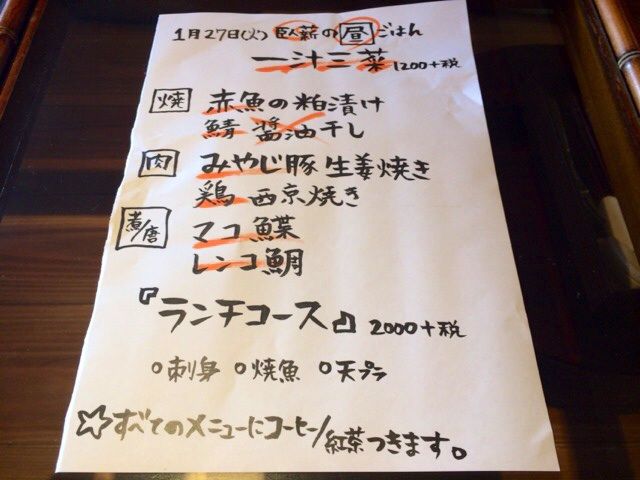 1月27日(火) 臥薪の昼ごはん
一汁三菜 1200+税
焼 赤魚の粕漬け
鯖 醤油干し
肉 みやじ豚 生姜焼き
鶏 西京焼き
煮/唐 マコ鰈
レンコ鯛
『ランチコース』 2000+税
○刺身 ○焼魚 ○天プラ
☆すべてのメニューにコーヒー/紅茶つきます。